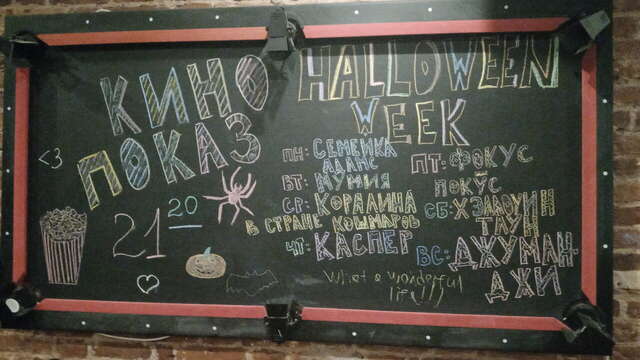 КИНО
ПОКАЗ
<3
21 20
HALLOWEEN
WEEK
ПН: СЕМЕЙКА
АДАМС
ВТ: МУМИЯ
СР: КОРАЛИНА
В СТРАНЕ КОШМАРОВ
ЧТ: КАСПЕР
ПТ: ФОКУС
ПОКУС
СБ: ХЭЛЛОУИН
ТАУН
ВС: ДЖУМАН-
ДЖИ
What a wonderful
life!!!